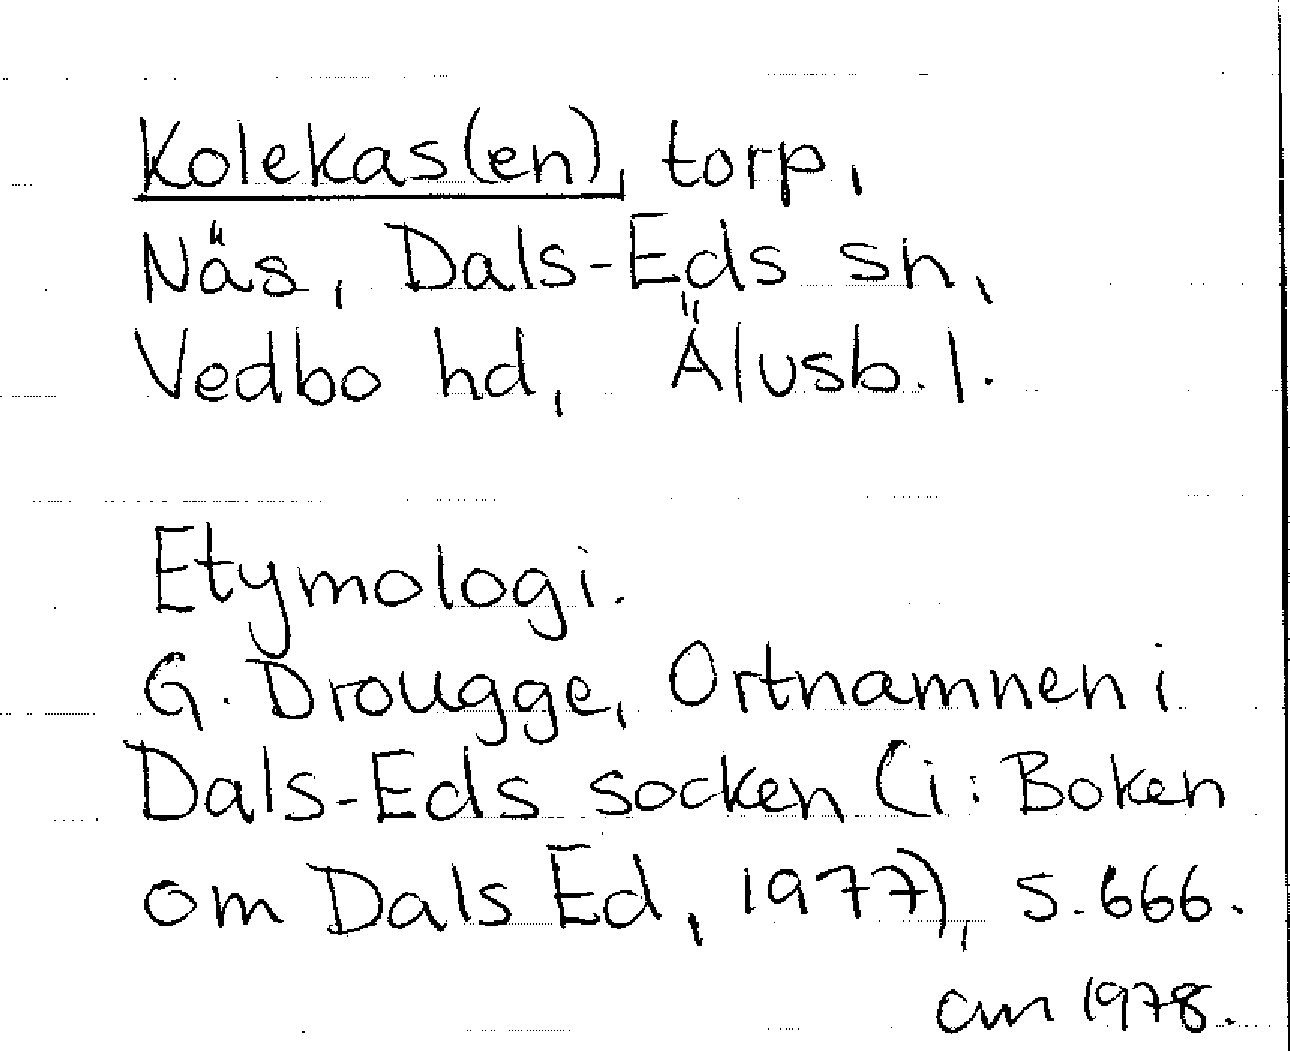 Kolekas(en), torp,
Näs, Dals-Eds sn,
Vedbo hd, Älvsb. l.
Etymologi.
G. Drougge, Ortnamnen i
Dals-Eds socken (i: Boken
om Dals Ed, 1977), s. 666.
CM 1978.